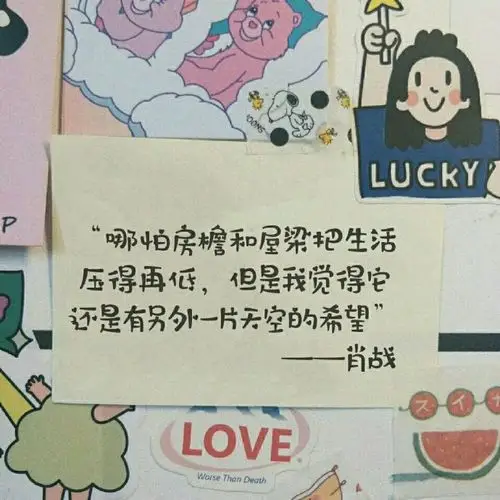 LUCKY
P
“哪怕房檐和屋梁把生活
压得再低，但是我觉得它
还是有另外一片天空的希望”
——肖战
LOVE
Worse Than Death
スイ